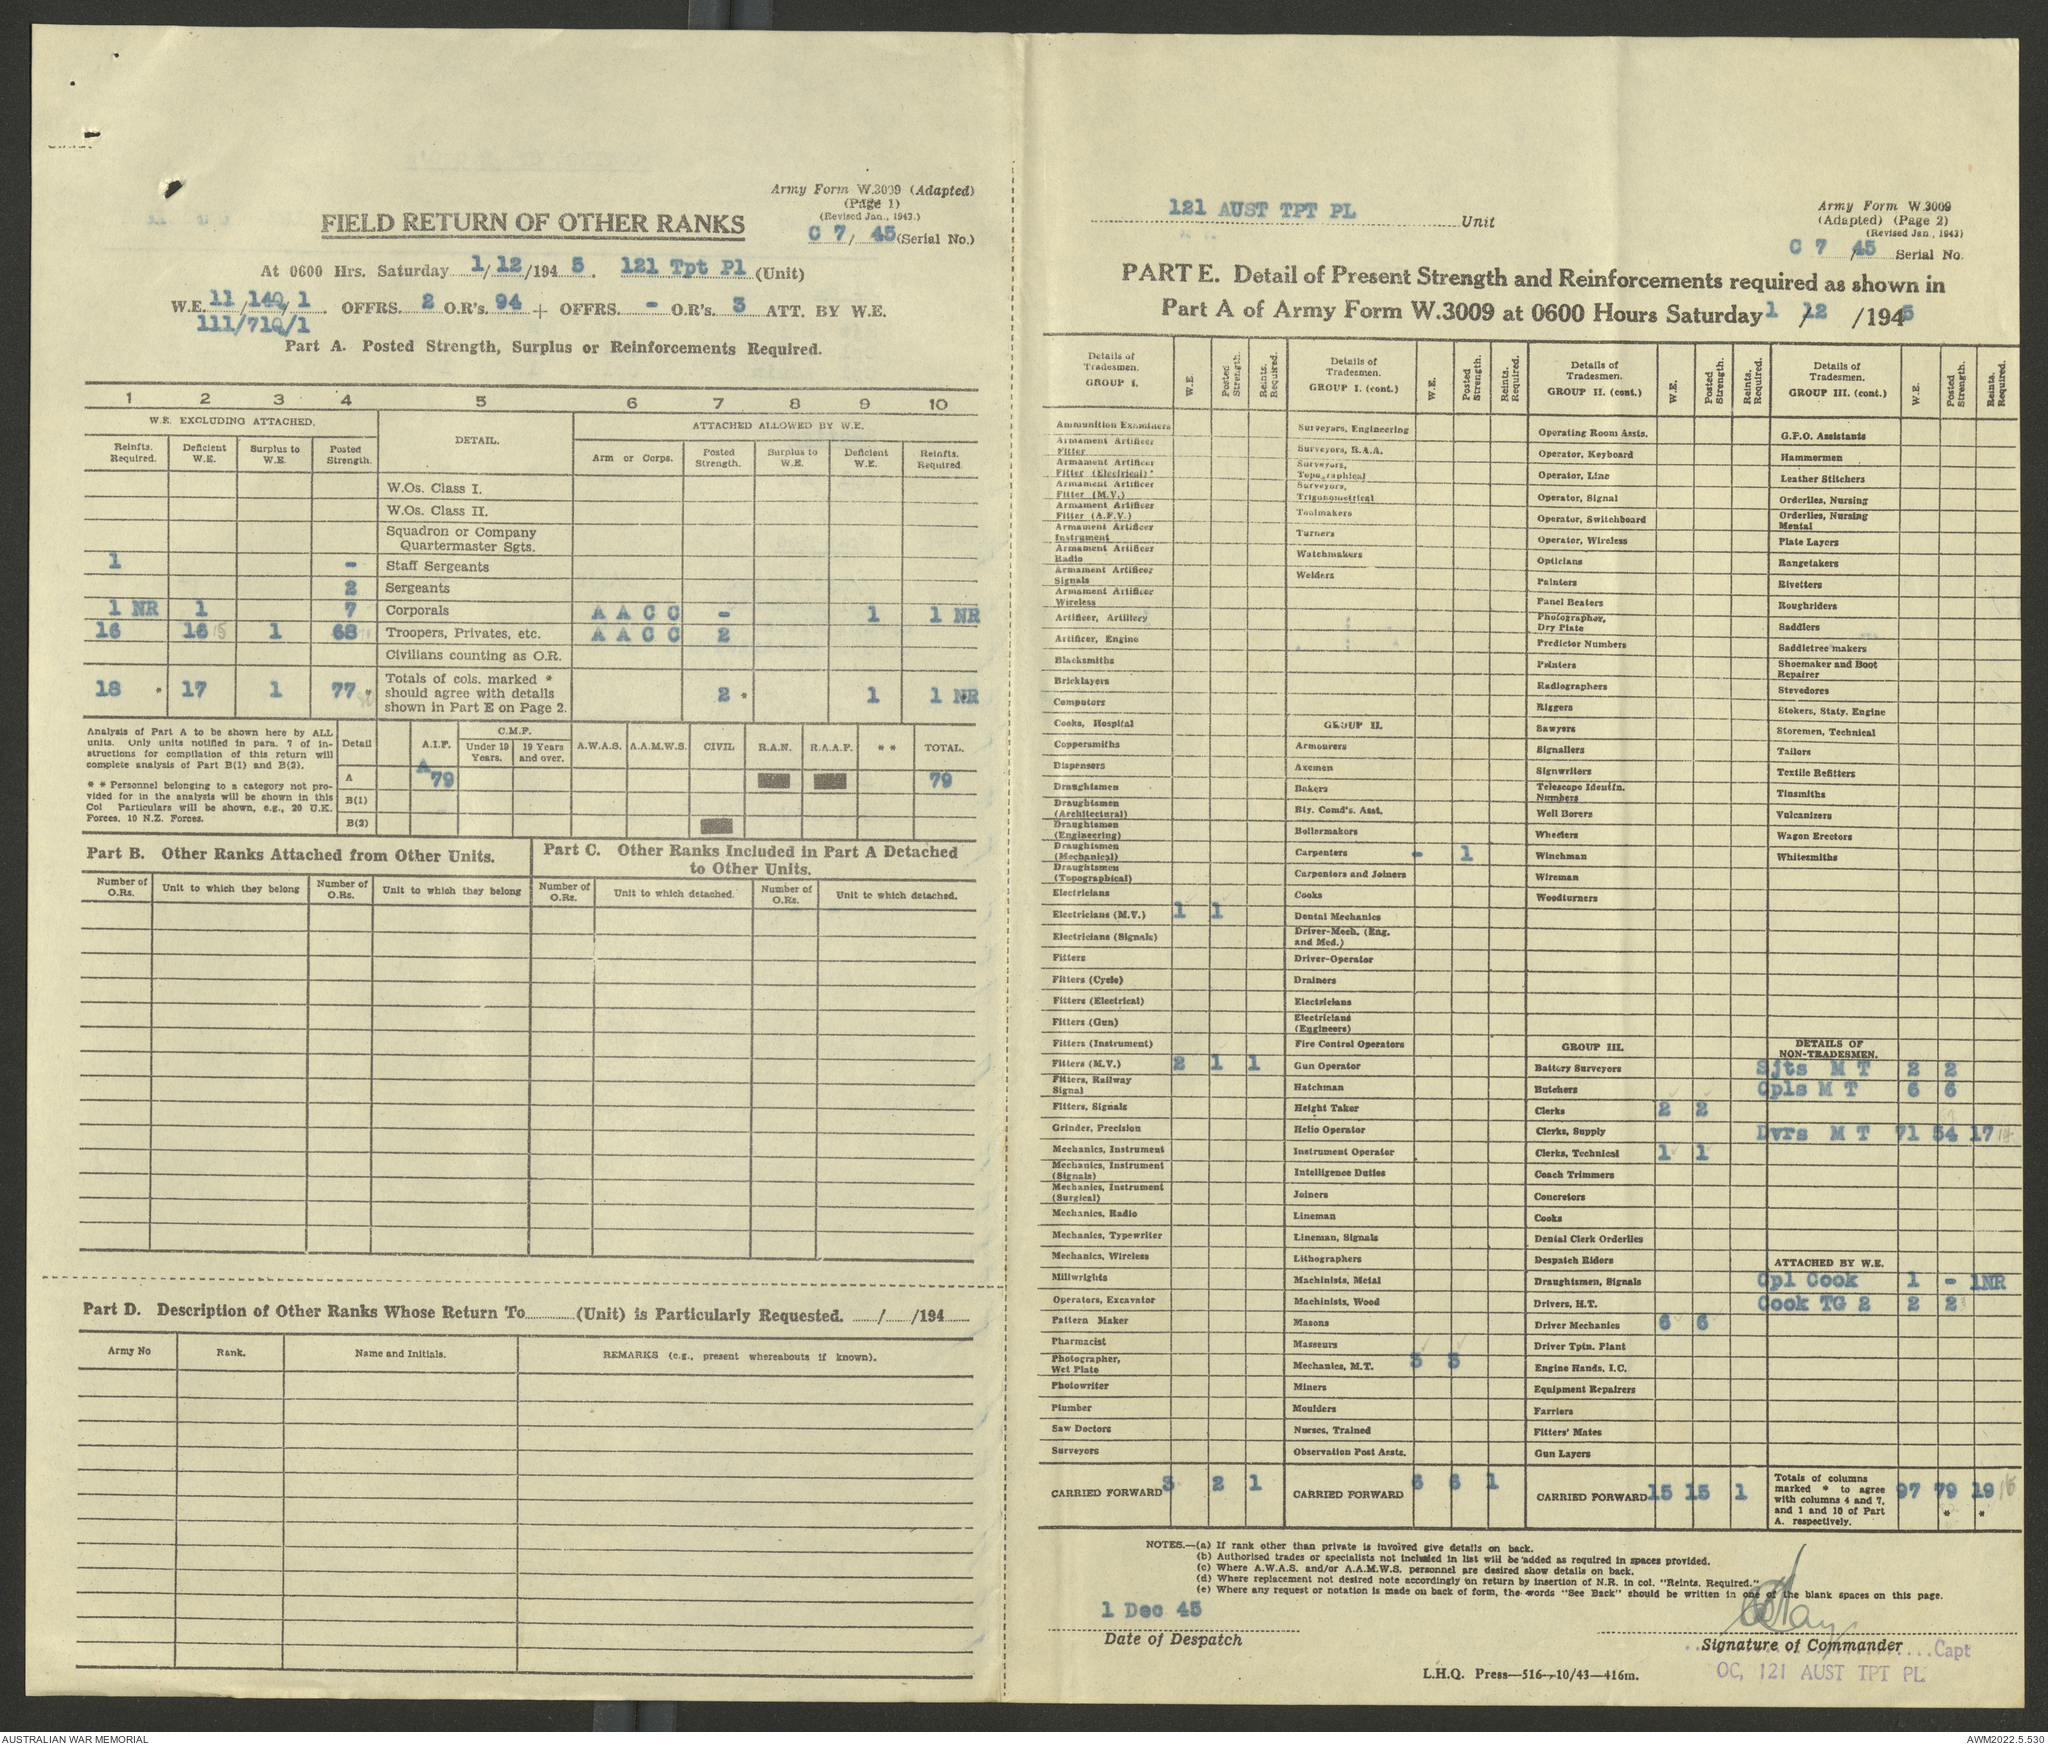 Army Form W.3009 (Adapted)
(Page 1)
(Revised Jan., 1943.)
FIELD RETURN OF OTHER RANKS
C 7/ 45 (Serial No.)
At 0600 Hrs. Saturday 1/12/194 5. 121 Tpt Pl (Unit)
W.E. 11/140/1. OFFRS. 2 O.R's. 94 + OFFRS. - O.R's. 3 ATT. BY W.E.
111/710/1
Part A. Posted Strength, Surplus or Reinforcements Required.
1 2 3 4 5 6 7 8 9 10
W.E. EXCLUDING ATTACHED. DETAIL. ATTACHED ALLOWED BY W.E.
Reinfts. Required. Deficient W.E. Surplus to W.E. Posted Strength. Arm or Corps. Posted Strength. Surplus to W.E. Deficient W.E. Reinfts. Required.
W.Os. Class I.
W.Os. Class II.
Squadron or Company
Quartermaster Sgts.
1 - Staff Sergeants
2 Sergeants
1 NR 1 7 Corporals A A C C - 1 1 NR
16 16 15 1 68 Troopers, Privates, etc. A A C C 2
Civilians counting as O.R.
18 * 17 1 77 * Totals of cols. marked * should agree with details shown in Part E on Page 2. 2 * 1 1 NR
Analysis of Part A to be shown here by ALL
units. Only units notified in para. 7 of in-
structions for compilation of this return will
complete analysis of Part B(1) and B(2).
* * Personnel belonging to a category not pro-
vided for in the analysis will be shown in this
Col Particulars will be shown, e.g., 20 U.K.
Forces, 10 N.Z. Forces.
Detail A.I.F. C.M.F. Under 19 Years. 19 Years and over. A.W.A.S. A.A.M.W.S. CIVIL R.A.N. R.A.A.F. * * TOTAL.
A A 79 79
B(1)
B(2)
Part B. Other Ranks Attached from Other Units.
Number of O.Rs. Unit to which they belong Number of O.Rs. Unit to which they belong
Part C. Other Ranks Included in Part A Detached
to Other Units.
Number of O.Rs. Unit to which detached. Number of O.Rs. Unit to which detached.
Part D. Description of Other Ranks Whose Return To (Unit) is Particularly Requested. / /194
Army No Rank. Name and Initials. REMARKS (e.g., present whereabouts if known).
121 AUST TPT PL Unit
Army Form W.3009
(Adapted) (Page 2)
(Revised Jan., 1943)
C 7 /45 Serial No.
PART E. Detail of Present Strength and Reinforcements required as shown in
Part A of Army Form W.3009 at 0600 Hours Saturday 1 /12 /1945
Details of Tradesmen. GROUP I. W.E. Posted Strength. Reints. Required.
Ammunition Examiners
Armament Artificer Fitter
Armament Artificer Fitter (Electrical)
Armament Artificer Fitter (M.V.)
Armament Artificer Fitter (A.F.V.)
Armament Artificer Instrument
Armament Artificer Radio
Armament Artificer Signals
Armament Artificer Wireless
Artificer, Artillery
Artificer, Engine
Blacksmiths
Bricklayers
Computors
Cooks, Hospital
Coppersmiths
Dispensers
Draughtsmen
Draughtsmen (Architectural)
Draughtsmen (Engineering)
Draughtsmen (Mechanical)
Draughtsmen (Topographical)
Electricians
Electricians (M.V.) 1 1
Electricians (Signals)
Fitters
Fitters (Cycle)
Fitters (Electrical)
Fitters (Gun)
Fitters (Instrument)
Fitters (M.V.) 2 1 1
Fitters, Railway Signal
Fitters, Signals
Grinder, Precision
Mechanics, Instrument
Mechanics, Instrument (Signals)
Mechanics, Instrument (Surgical)
Mechanics, Radio
Mechanics, Typewriter
Mechanics, Wireless
Millwrights
Operators, Excavator
Pattern Maker
Pharmacist
Photographer, Wet Plate
Photowriter
Plumber
Saw Doctors
Surveyors
CARRIED FORWARD 3 2 1
Details of Tradesmen. GROUP I. (cont.) W.E. Posted Strength. Reints. Required.
Surveyors, Engineering
Surveyors, R.A.A.
Surveyors, Topographical
Surveyors, Trigonometrical
Toolmakers
Turners
Watchmakers
Welders
GROUP II.
Armourers
Axemen
Bakers
Bty. Comd's. Asst.
Boilermakers
Carpenters - 1
Carpenters and Joiners
Cooks
Dental Mechanics
Driver-Mech. (Eng. and Med.)
Driver-Operator
Drainers
Electricians
Electricians (Engineers)
Fire Control Operators
Gun Operator
Hatchman
Height Taker
Helio Operator
Instrument Operator
Intelligence Duties
Joiners
Lineman
Lineman, Signals
Lithographers
Machinists, Metal
Machinists, Wood
Masons
Masseurs
Mechanics, M.T. 3 3
Miners
Moulders
Nurses, Trained
Observation Post Assts.
CARRIED FORWARD 6 6 1
Details of Tradesmen. GROUP II. (cont.) W.E. Posted Strength. Reints. Required.
Operating Room Assts.
Operator, Keyboard
Operator, Line
Operator, Signal
Operator, Switchboard
Operator, Wireless
Opticians
Painters
Panel Beaters
Photographer, Dry Plate
Predictor Numbers
Printers
Radiographers
Riggers
Sawyers
Signallers
Signwriters
Telescope Identfn. Numbers
Well Borers
Wheelers
Winchman
Wireman
Woodturners
GROUP III.
Battery Surveyors
Butchers
Clerks 2 2
Clerks, Supply
Clerks, Technical 1 1
Coach Trimmers
Concretors
Cooks
Dental Clerk Orderlies
Despatch Riders
Draughtsmen, Signals
Drivers, H.T.
Driver Mechanics 6 6
Driver Tptn. Plant
Engine Hands, I.C.
Equipment Repairers
Farriers
Fitters' Mates
Gun Layers
CARRIED FORWARD 15 15 1
Details of Tradesmen. GROUP III. (cont.) W.E. Posted Strength. Reints. Required.
G.P.O. Assistants
Hammermen
Leather Stitchers
Orderlies, Nursing
Orderlies, Nursing Mental
Plate Layers
Rangetakers
Rivetters
Roughriders
Saddlers
Saddletree makers
Shoemaker and Boot Repairer
Stevedores
Stokers, Staty. Engine
Storemen, Technical
Tailors
Textile Refitters
Tinsmiths
Vulcanizers
Wagon Erectors
Whitesmiths
DETAILS OF NON-TRADESMEN.
Sjts M T 2 2
Cpls M T 6 6
Dvrs M T 71 54 17
ATTACHED BY W.E.
Cpl Cook 1 - 1NR
Cook TG 2 2 2
Totals of columns marked * to agree with columns 4 and 7, and 1 and 10 of Part A. respectively. 97 79 * 19 *
NOTES.—(a) If rank other than private is involved give details on back.
(b) Authorised trades or specialists not included in list will be added as required in spaces provided.
(c) Where A.W.A.S. and/or A.A.M.W.S. personnel are desired show details on back.
(d) Where replacement not desired note accordingly on return by insertion of N.R. in col. "Reints. Required."
(e) Where any request or notation is made on back of form, the words "See Back" should be written in one of the blank spaces on this page.
1 Dec 45
Date of Despatch
Signature of Commander Capt
OC, 121 AUST TPT PL
L.H.Q. Press—516—10/43—416m.
AUSTRALIAN WAR MEMORIAL
AWM2022.5.530